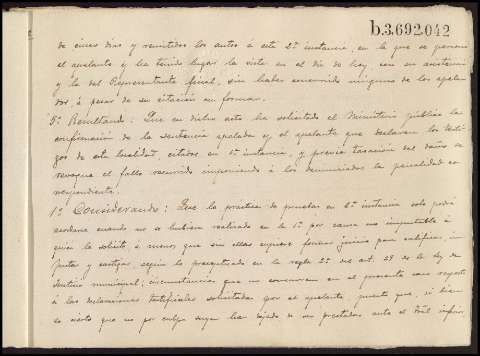 b.3.692.042
de cinco dias y remitidos los autos á esta 2ª instancia, en la que se personó
el apelante y ha tenido lugar la vista en el dia de hoy, con su asistencia
y la del Representante fiscal, sin haber concurrido ninguno de los apela-
dos, á pesar de su citación en forma.
5º Resultando: Que en dicho acto ha solicitado el Ministerio público la
confirmación de la sentencia apelada y el apelante que declaren los testi-
gos de esta localidad, citados en 1ª instancia, y previa tasación del daño se
revoque el fallo recurrido imponiendo á los denunciados la penalidad co-
rrespondiente.
1º Considerando: Que la práctica de pruebas en 2ª instancia solo podrá
acordarse cuando no se hubiera realizado en la 1ª por causa no imputable á
quien la solicite, á menos que sin ellas no pueda formar juicio para calificar, im-
putar y castigar, según lo preceptuado en la regla 2ª del art. 29 de la ley de
Justicia municipal, circunstancias que no concurren en el presente caso respecto
á las declaraciones testificales solicitadas por el apelante, puesto que, si bien
es cierto que no por culpa suya han dejado de ser prestadas ante el Trál inferior,